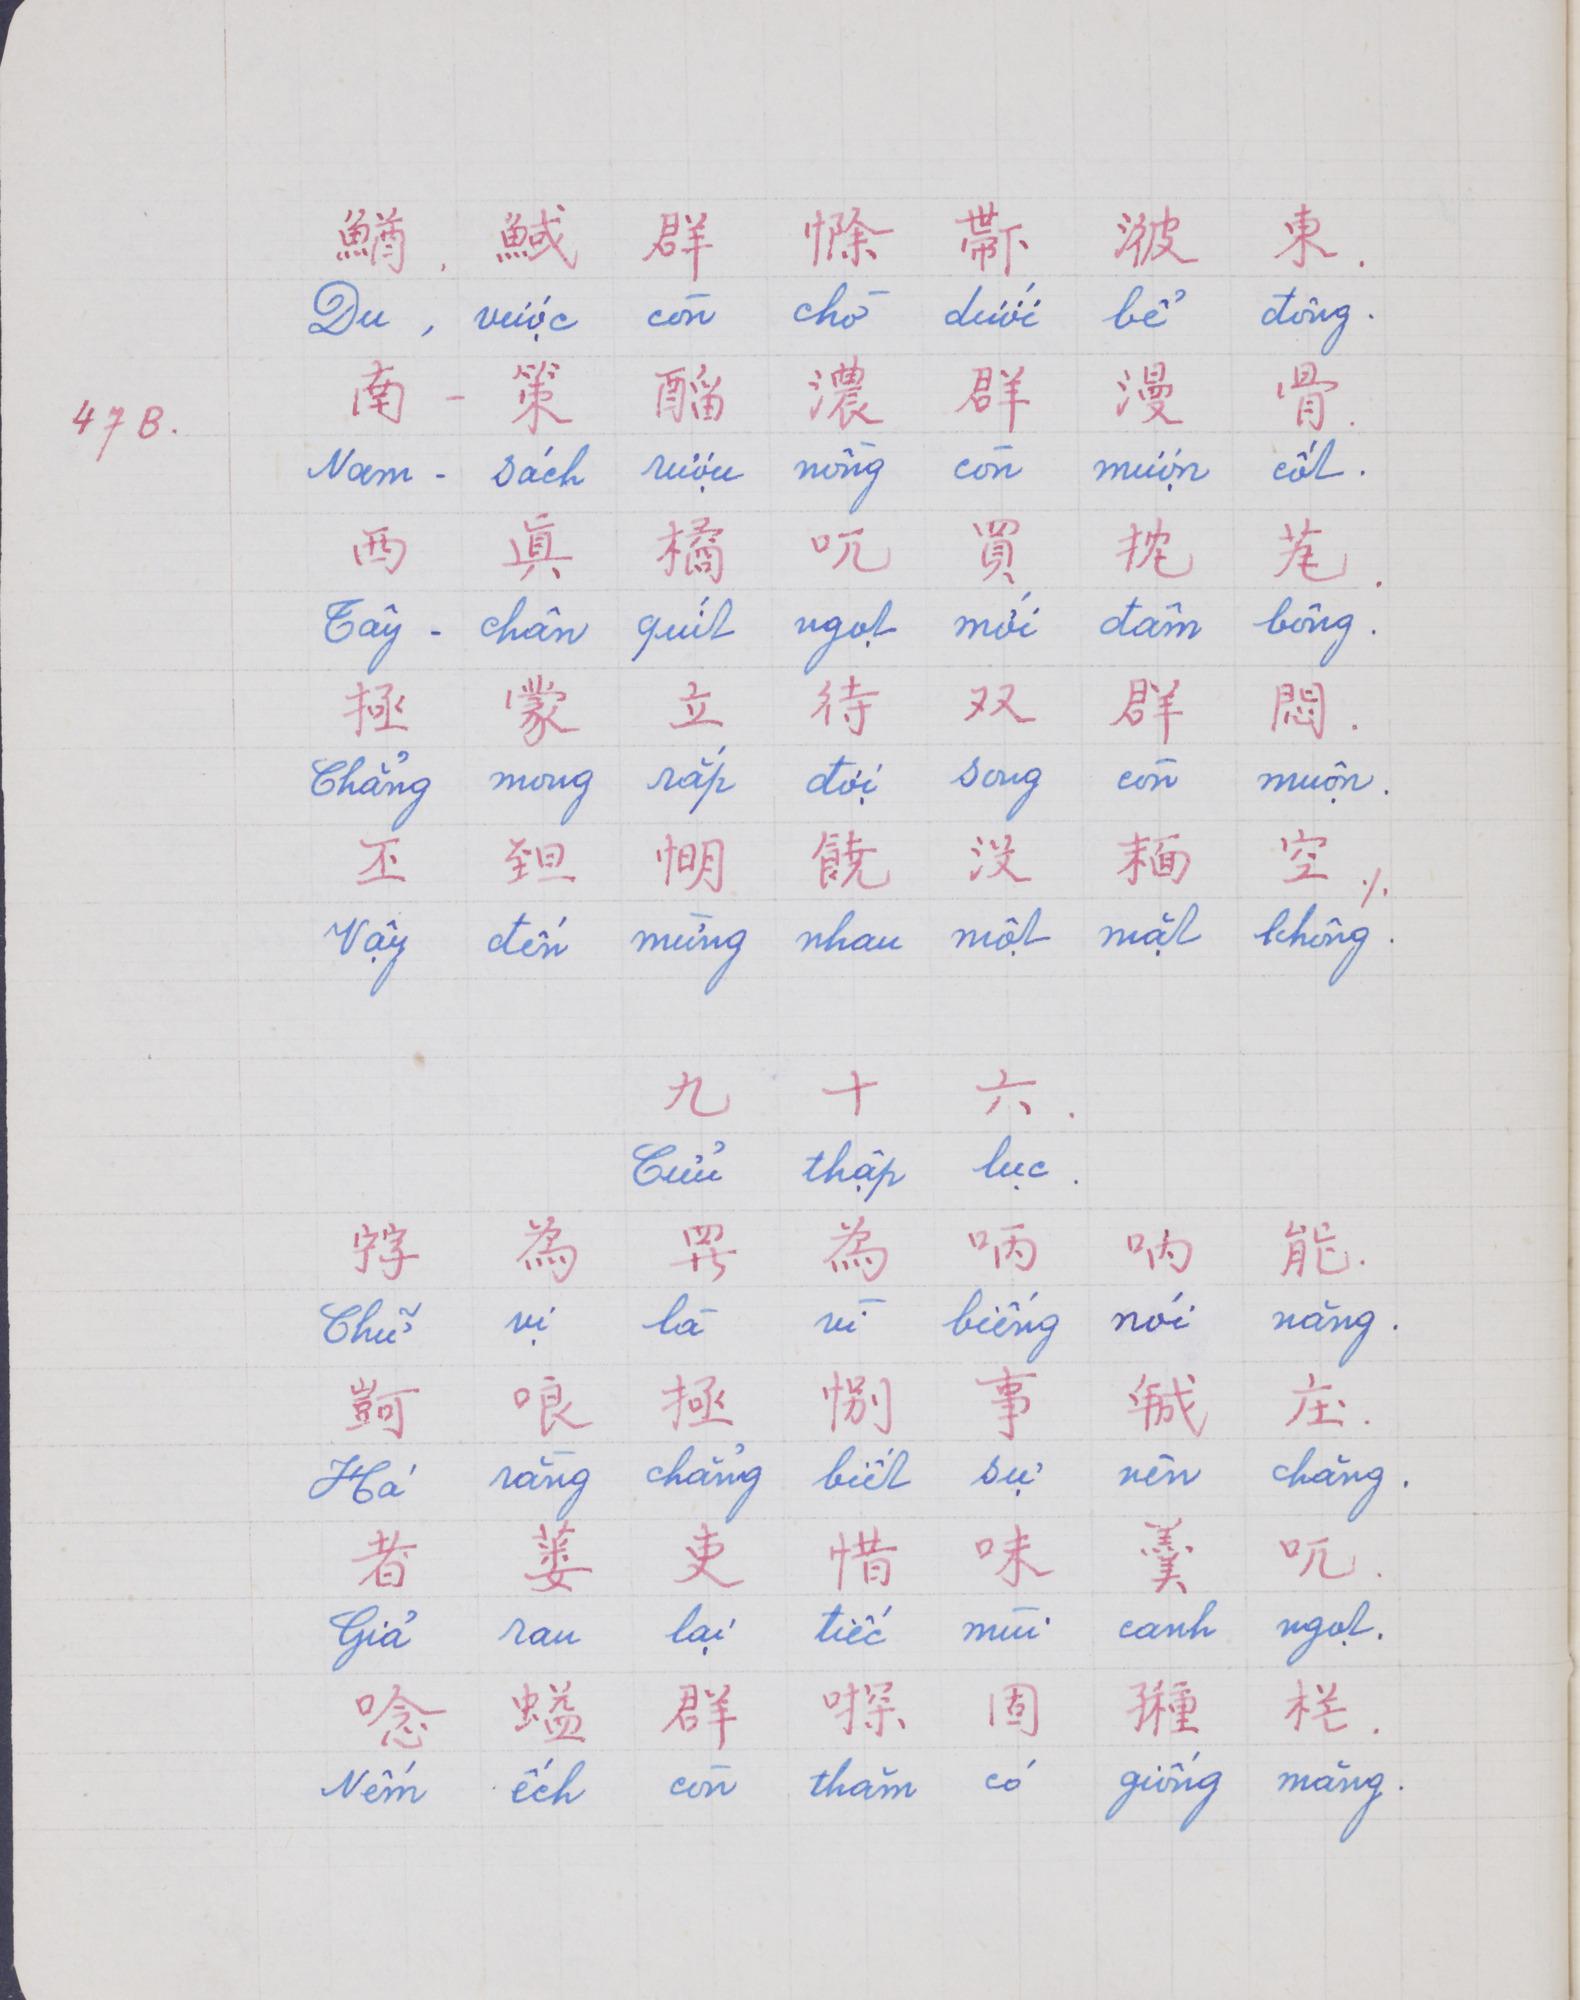 鱒, 魊 群 𢠩 𠁑 𣷷 東.
Du, vược còn chờ dưới bể đông.
47B.
南 - 策 𨢇 濃 群 漫 骨.
Nam - sách rượu nồng còn mượn cốt.
西 眞 橘 吭 買 扰 芼.
Tây - chân quít ngọt mới đâm bông.
極 蒙 立 待 双 群 悶.
Chẳng mong rắp đợi song còn muộn.
丕 𦤾 𢜠 饒 没 𩈘 空 ./.
Vậy đến mừng nhau một mặt không.
九 十 六.
Cửu thập lục.
𡨸 為 𱺵 為 哂 吶 能.
Chữ vị là vì biếng nói năng.
㗿 哏 極 別 事 𢧚 庄.
Há rằng chẳng biết sự nên chăng.
者 蒌 吏 惜 味 羹 吭.
Giả rau lại tiếc mùi canh ngọt.
唸 螠 群 嘆 固 種 杧.
Nếm ếch còn thăm có giống măng.